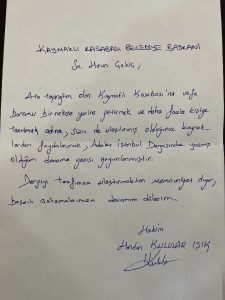 KAYMAKLI KASABASI BELEDİYE BAŞKANI
Sn.
Ata toprağım olan Kaymaklı Kasabası'na vefa
borcumu bir nebze yerine getirmek, ve daha fazla kişiye
tanıtmak adına, sizin de ulaştırmış olduğunuz kaynak-
lardan faydalanarak, Adalar İstanbul Dergisinde yazmış
olduğum deneme yazısı yayımlanmıştır.
Dergiyi tarafınıza ulaştırmaktan memnuniyet duyar,
başarılı çalışmalarınızın devamını dilerim.
Hakim
IŞIK